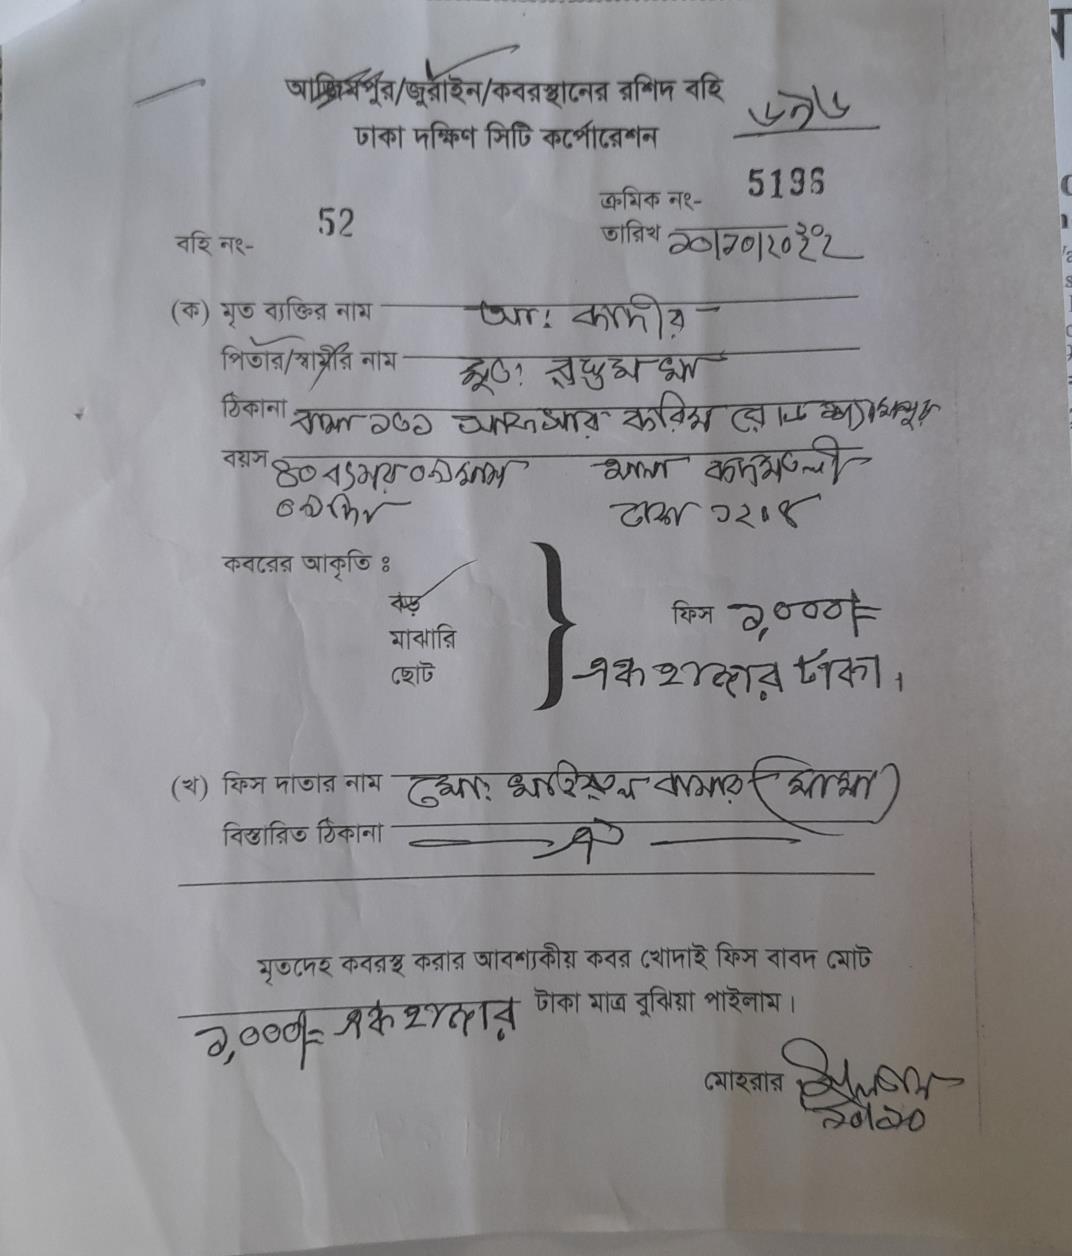 আজিমপুর/জুরাইন/কবরস্থানের রশিদ বহি
ঢাকা দক্ষিণ সিটি কর্পোরেশন
ক্রমিক নং- 5196
বহি নং- 52
তারিখ ২০/১০/২০২২
(ক) মৃত ব্যক্তির নাম আঃ কাদীর
পিতার/স্বামীর নাম মৃতঃ
ঠিকানা বাসা করিম রোড শ্যামপুর
বয়স ৪০ বৎসর ০৯ মাস থানা কদমতলী
দিন ঢাকা ১২০৪
কবরের আকৃতি ঃ
বড়
মাঝারি
ছোট
ফিস ১,০০০/=
এক হাজার টাকা।
(খ) ফিস দাতার নাম মোঃ (মামা)
বিস্তারিত ঠিকানা ঐ
মৃতদেহ কবরস্থ করার আবশ্যকীয় কবর খোদাই ফিস বাবদ মোট
১,০০০/= এক হাজার টাকা মাত্র বুঝিয়া পাইলাম।
মোহরার